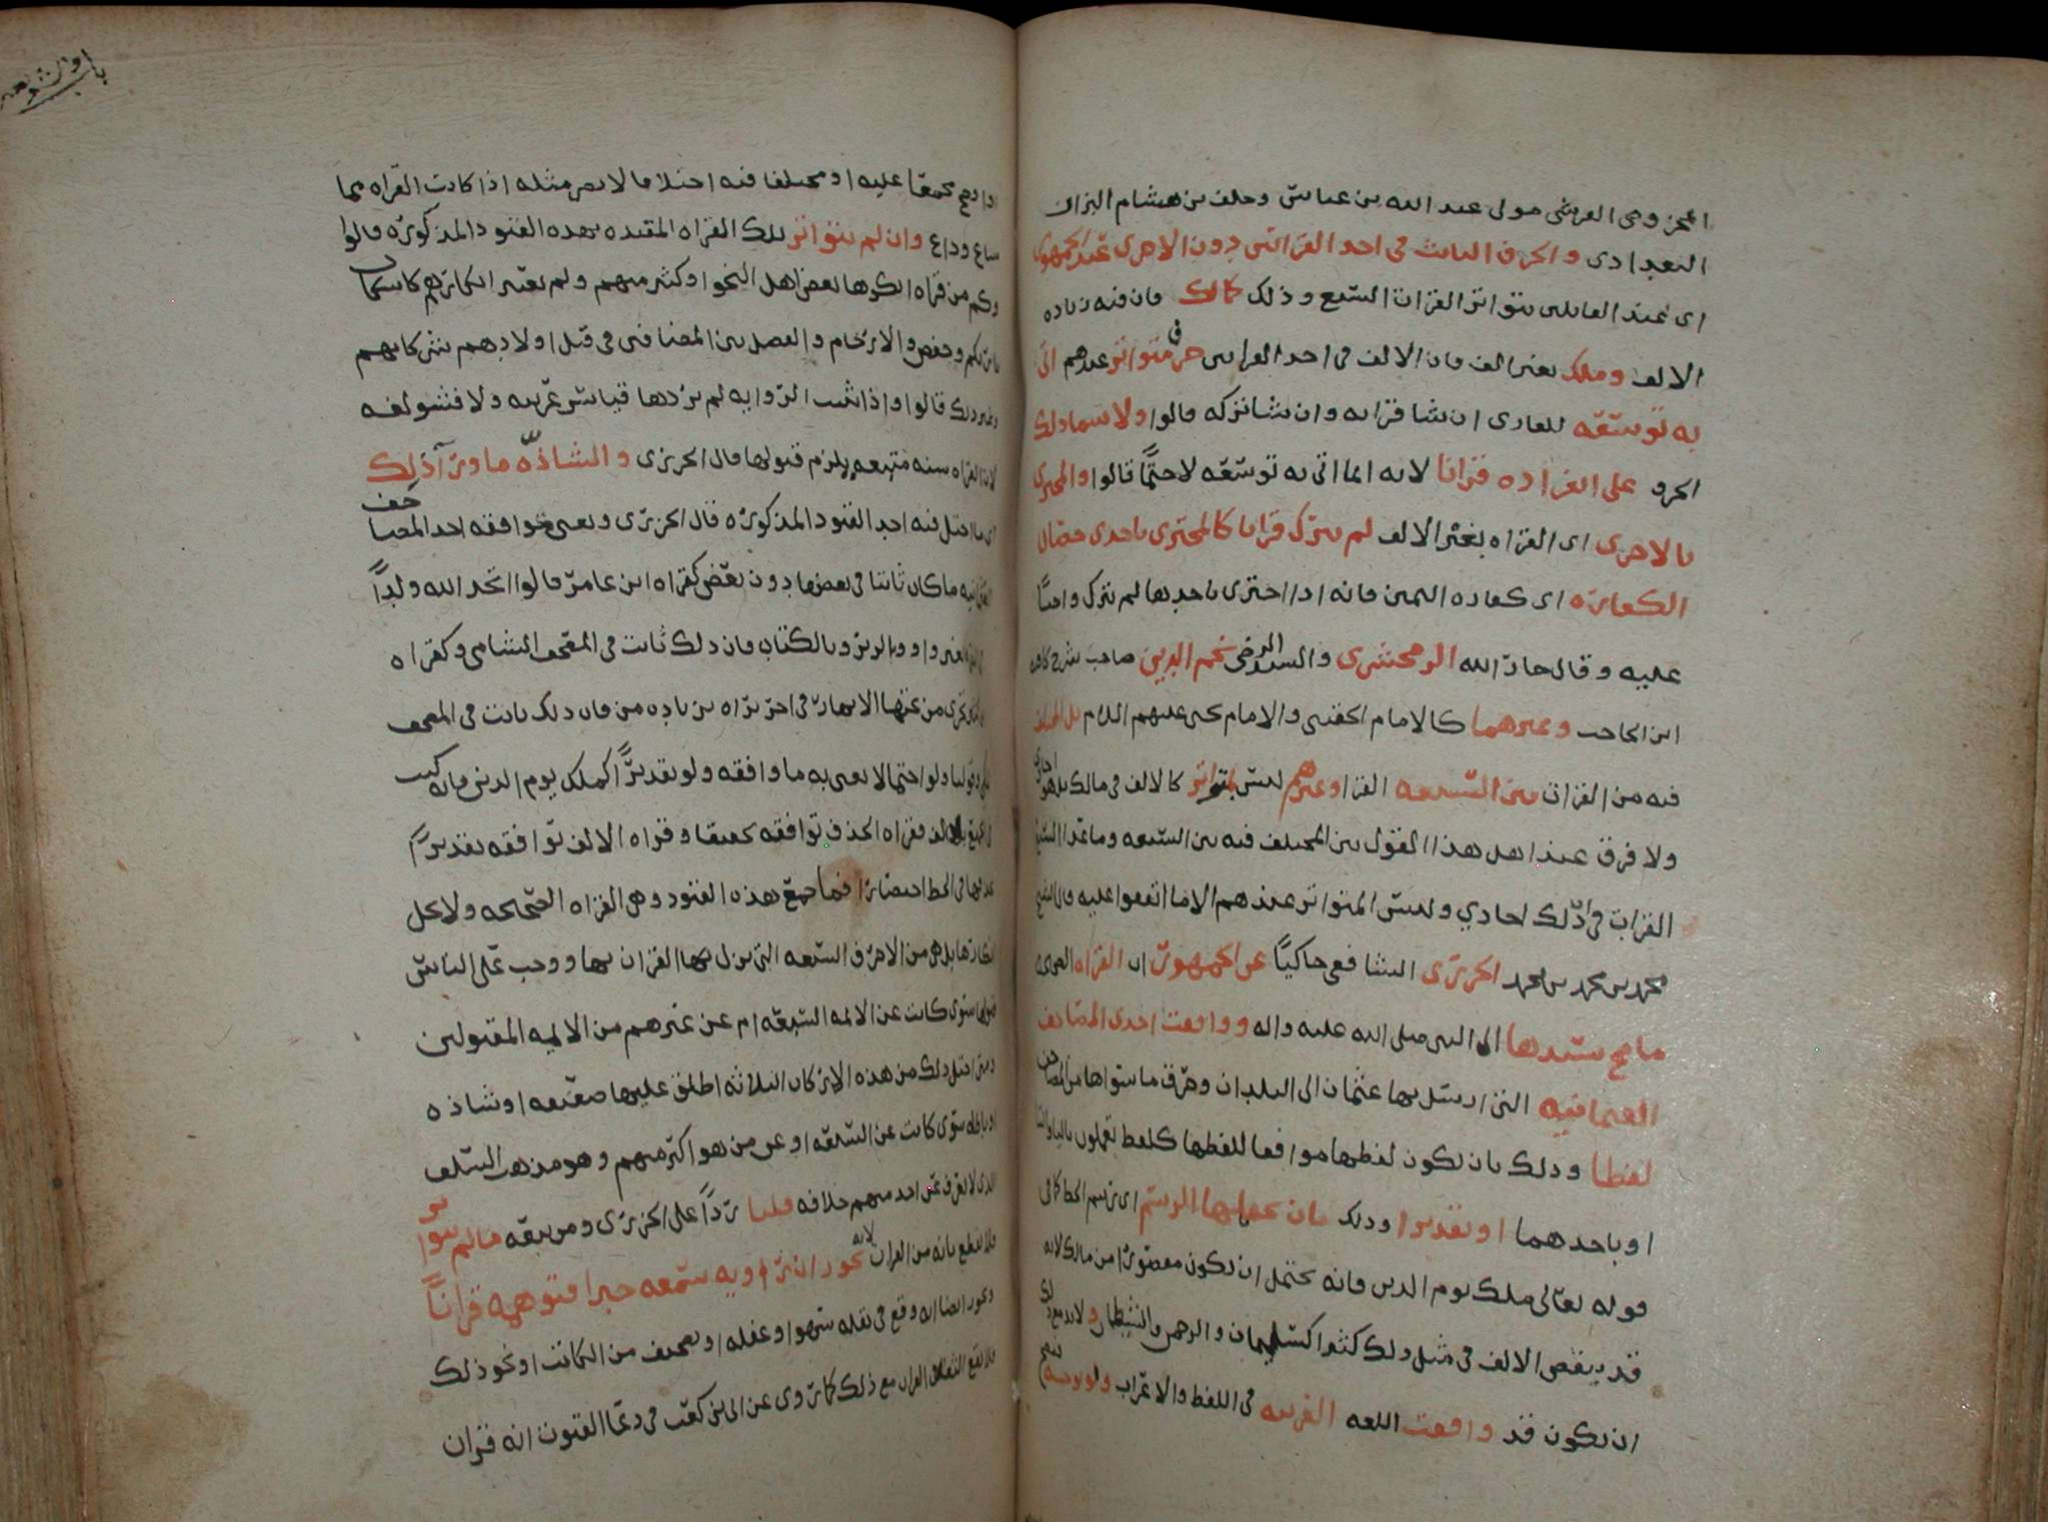 المخزومى القرشى مولى عبد الله بن عباس وخلف بن هشام البزار
البغدادى والحرف الثابت فى احد القراتين دون الاخرى عند الجمهور
اى عند القايلين بتواتر القرات السبع وذلك كمالك فان فيه زياده
الالف وملك بغير الف فان الالف فى احد القراتين حرف متواتر عندهم اتى
به توسعه للقارى ان شا قراه وان شا تركه قالوا ولا سما ذلك
الحرف على انفراده قرانا لانه انما اتى به توسعه لا حتما قالوا والمجتزى
بالاخرى اى القراه بغير الالف لم يترك قرانا كالمجتزى باحدى خصال
الكفاره اى كفاره اليمين فانه اذا اجتزى باحدها لم يترك واجبا
عليه وقال جار الله الزمخشرى والسيد الرضى نجم الدين صاحب شرح كافيه
ابن الحاجب وغيرهما كالامام الحقينى والامام يحيى عليهم السلام بل المختلف
فيه من القرات بين السبعه القرا وغيرهم ليس بمتواتر كالالف فى مالك بل هو احادى
ولا فرق عند اهل هذا القول بين المختلف فيه بين السبعه وما عدا السبع
القرات فى ان ذلك احادي وليس المتواتر عندهم الا ما اتفقوا عليه وقال الشيخ
محمد بن محمد بن محمد الجزرى الشافعى حاكيًا عن الجمهور ان القراه القويه
ما صح سندها الى النبى صلى الله عليه واله ووافقت احدى المصاحف
العثمانيه التى ارسل بها عثمان الى البلدان وحرق ما سواها من المصاحف
لفظا وذلك بان يكون لفظها موافقا للفظها كلفظ تعملون باليا والتا
او باحدهما او تقديرا وذلك بان يحتملها الرسم اى رسم الخط كما فى
قوله تعالى ملك يوم الدين فانه يحتمل ان يكون مقصورا من مالك لانه
قد ينقص الالف فى مثل ذلك كثيرا كسليمان والرحمن والشيطان ولابد مع ذلك
ان يكون قد وافقت اللغه العربيه فى اللفظ والاعراب ولو بوجه فصيح
اذا وقع مجمعًا عليه او مختلفا فيه اختلافا لا يضر مثله اذا كانت القراه مما
شاع وذاع وان لم يتواتر تلك القراه المقيده بهذه القيود المذكوره قالوا
وكم من قراه انكرها بعض اهل النحو او كثير منهم ولم يعتبر انكارهم كاسكان
بارئكم وخفض والارحام والفصل بين المضافين فى قتل اولادهم شركائهم
وغير ذلك قالوا واذا ثبت الروايه لم يردها قياس عربيه ولا فشو لغه
لان القراه سنه متبعه يلزم قبولها قال الجزرى والشاذه ما ورا ذلك
اى ما اختل فيه احد القيود المذكوره قال الجزرى ونعنى بموافقه احد المصاحف
العثمانيه ما كان ثابتا فى بعضها دون بعض كقراه ابن عامر قالوا اتخذ الله ولدًا
بغير واو وبالزبر وبالكتاب فان ذلك ثابت فى المصحف الشامى وكقراه
تجرى من تحتها الانهار فى اخر براه بزياده من فان ذلك ثابت فى المصحف
المكى وقولنا ولو احتمالا نعنى به ما وافقه ولو تقديرًا كملك يوم الدين فانه كتب
بغير الف فقراه الحذف توافقه تحقيقا وقراه الالف توافقه تقديرًا
لحذفها فى الخط اختصارا فما جمع هذه القيود وهى القراه الصحيحه ولا يحل
انكارها بل هى من الاحرف السبعه التى نزل بها القران بها ووجب على الناس
قبولها سوى كانت عن الائمه السبعه ام عن غيرهم من الائمه المقبولين
ومتى اختل ذلك من هذه الاركان الثلاثه اطلق عليها ضعيفه او شاذه
او باطله سوى كانت عن السبعه او عن من هو اكبر منهم وهو مذهب السلف
الذى لا يعرف عن احد منهم خلافه قلنا ردًا على الجزرى ومن تبعه ما لم يتواتر
فلا نقطع بانه من القران لانه يجوز ان راويه سمعه خبرا فتوهمه قرانًا
ويجوز ايضا انه وقع فى نقله سهوا او غفله او تصحيف من الكاتب او نحو ذلك
فلا يقع الثقه القران مع ذلك كما روى عن ابى بن كعب فى دعا القنوت انه قران